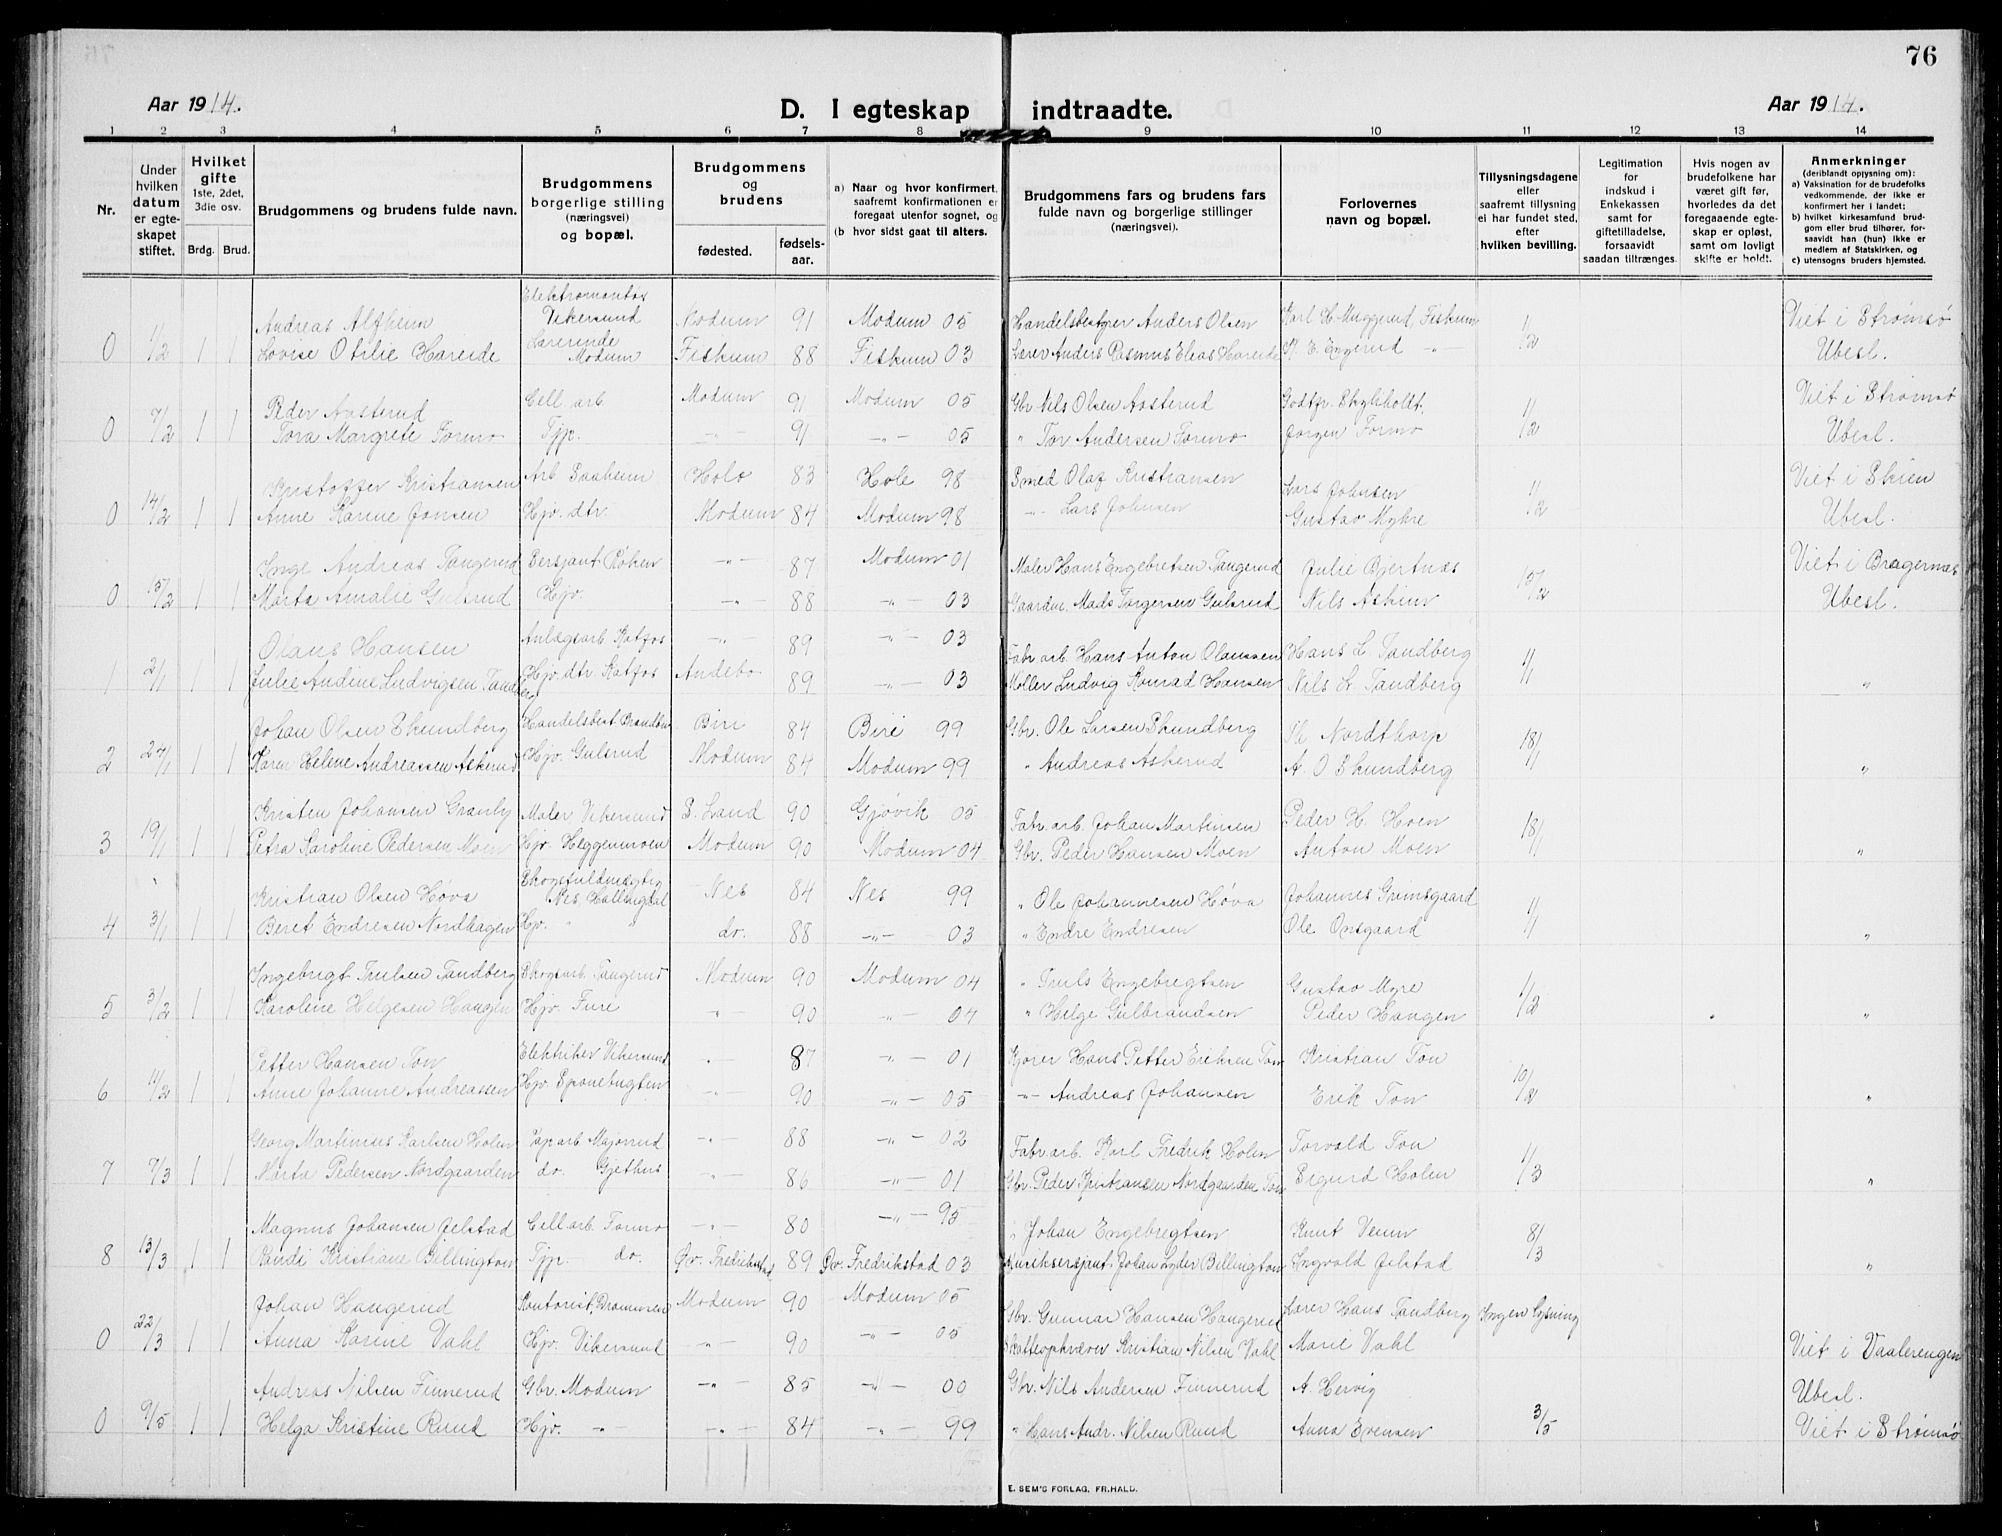 76
Aar 1914.
D. I egteskap indtraadte.
Aar 1914.
1 2 3 4 5 6 7 8 9 10 11 12 13 14
Nr.
Under hvilken datum er egteskapet stiftet.
Hvilket gifte 1ste, 2det, 3die osv.
Brdg. Brud.
Brudgommens og brudens fulde navn.
Brudgommens borgerlige stilling (næringsvei) og bopæl.
Brudgommens og brudens
fødested. fødselsaar.
a) Naar og hvor konfirmert, saafremt konfirmationen er foregaat utenfor sognet, og
(b hvor sidst gaat til alters.
Brudgommens fars og brudens fars fulde navn og borgerlige stillinger (næringsvei).
Forlovernes navn og bopæl.
Tillysningsdagene eller saafremt tillysning ei har fundet sted, efter hvilken bevilling.
Legitimation for indskud i Enkekassen samt for giftetilladelse, forsaavidt saadan tiltrænges.
Hvis nogen av brudefolkene har været gift før, hvorledes da det foregaaende egteskap er opløst, samt om lovligt skifte er holdt.
Anmerkninger (deriblandt opysning om):
a) Vaksination for de brudefolks vedkommende, der ikke er konfirmert her i landet;
b) hvilket kirkesamfund brudgom eller brud tilhører, forsaavidt han (hun) ikke er medlem af Statskirken, og
c) utensogns bruders hjemsted.
Andreas Alfheim Elektromontør Vikersund Modum 91 Modum 05 Handelsbestyrer Anders Olsen Karl H Muggerud, Fiskum Viet i Strømsø
0 1/2 1 1 Lovise Otilie Hareide Lærerinde Modum Fiskum 88 Fiskum 03 Lærer Anders Rasmus Elias Hareide E. Engerud -"- 1/2 Ubesl.
Peder Aasterud Cell. arb Modum 91 Modum 05 Gbr Nils Olsen Aasterud Godtfr. Skykholdt. Viet i Strømsø
0 7/2 1 1 Tora Margrete Formo Tjp. -"- 91 -"- 05 " Tor Andersen Formo Jørgen Formo 1/2 Ubesl.
Kristoffer Kristiansen Arb Saaheim Hole 83 Hole 98 Smed Olaf Kristiansen Lars Johnsen Viet i Skien
0 14/2 1 1 Anne Karine Jonsen Hjv. dtr. Modum 84 Modum 98 -"- Lars Johnsen Gustav Myhre 1/2 Ubesl.
Inge Andreas Tangerud Sersjant Røken -"- 87 Modum 01 Maler Hans Engebretsen Tangerud Julie Bjertnæs Viet i Bragernæs
0 15/2 1 1 Marta Amalie Gulsrud Hjv. -"- 88 -"- 03 Gaardm. Mads Torgersen Gulsrud Nils Askim 15/2 Ubesl.
Olaus Hansen Anlægsarb Katfos -"- 89 -"- 03 Fabr arb. Hans Anton Olaussen Hans L Tandberg
1 2/1 1 1 Julie Andine Ludvigsen Hjv. dtr Katfos Andebo 89 -"- 03 Møller Ludvig Konrad Hansen Nils L. Tandberg 1/1 "
Johan Olsen Skundberg Handelsbest. Biri 84 Biri 99 Gbr. Ole Larsen Skundberg Nordthorp
2 27/1 1 1 Karen Helene Andreassen Askerud Hjv. Gulsrud Modum 84 Modum 99 " Andreas Askerud A. O Skundberg 18/1 "
Kristen Johansen Granly Maler Vikersund S. Land 90 Gjøvik 05 Fabr. arb. Johan Martinsen Peder H. Hoen
3 19/1 1 1 Petra Karoline Pedersen Moen Hjv. Heggenmoen Modum 90 Modum 04 Gbr. Peder Hansen Moen Anton Moen 18/1 "
Kristian Olsen Høva Nes Hallingdal Nes 84 Nes 99 " Ole Johannesen Høva Johannes Grimsgaard
4 3/1 1 1 Beret Endresen Nordhagen Hjv. " " do. 88 -"- 03 " Endre Endresen Ole Onsgaard 1/1 "
Ingebrigt Trulsen Tandberg Skogsarb. Tangerud Modum 90 Modum 04 " Truls Engebregtsen Gustav Myre
5 3/2 1 1 Karoline Helgesen Haugen Hjv. Fure " 90 -"- 04 " Helge Gulbrandsen Peder Haugen 1/2 "
Petter Hansen Ton Elektriker Vikersund -"- 87 -"- 01 Kjører Hans Petter Eriksen Ton Kristian Ton
6 11/2 1 1 Anne Johanne Andreassen Hjv. Sponebugten 90 -"- 05 -"- Andreas Johansen Erik Ton 10/2 "
Georg Martinius Karlsen Holm Pap arb Majorrud -"- 88 -"- 02 Fabr. arb. Karl Fredrik Holm Torvald Ton
7 7/3 1 1 Marta Pedersen Nordgaarden do. Gjethus -"- 86 -"- 01 Gbr. Peder Kristiansen Nordgaarden Ton Sigurd Holm 1/3 "
Magnus Johansen Jelstad Cell arb. Formo -"- 80 -"- 95 " Johan Engebregtsen Knut Venn
8 13/3 1 1 Randi Kristiane Billington Tjp. do. Øv. Fredrikstad 89 Øv. Fredrikstad 03 Musiksersjant Johan Lyder Billington Ingvald Jelstad 8/3 "
Johan Haugerud Kontorist, Drammen Modum 90 Modum 05 Gbr. Gunnar Hansen Haugerud Lærer Hans Tandberg Ingen lysning
0 22/3 1 1 Anna Karine Vahl Hjv. Vikersund -"- 90 -"- 05 Skatteopkræver Kristian Nilsen Vahl Marie Vahl Viet i Vaalerengen
Andreas Nilsen Finnerud Gbr. Modum -"- 85 -"- 00 Gbr. Nils Andersen Finnerud A. Hervig Ubesl.
0 9/5 1 1 Helga Kristine Ruud Hjv. -"- -"- 84 -"- 99 " Hans Andr. Nilsen Ruud Anna Evensen 3/5 Viet i Strømsø
E. SEM'S FORLAG, FR.HALD.